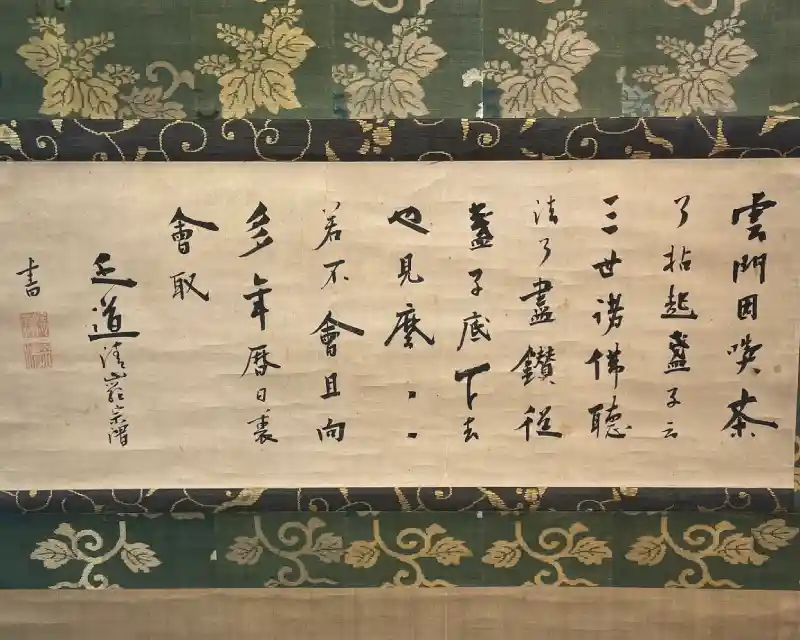 雲門因喫茶
了拈起盞子云
三世諸佛聽
法了盡鑽從
盞子底下去
也見麼〻〻
若不會且向
多年暦日裏
會取
乏道清巖宗渭
書